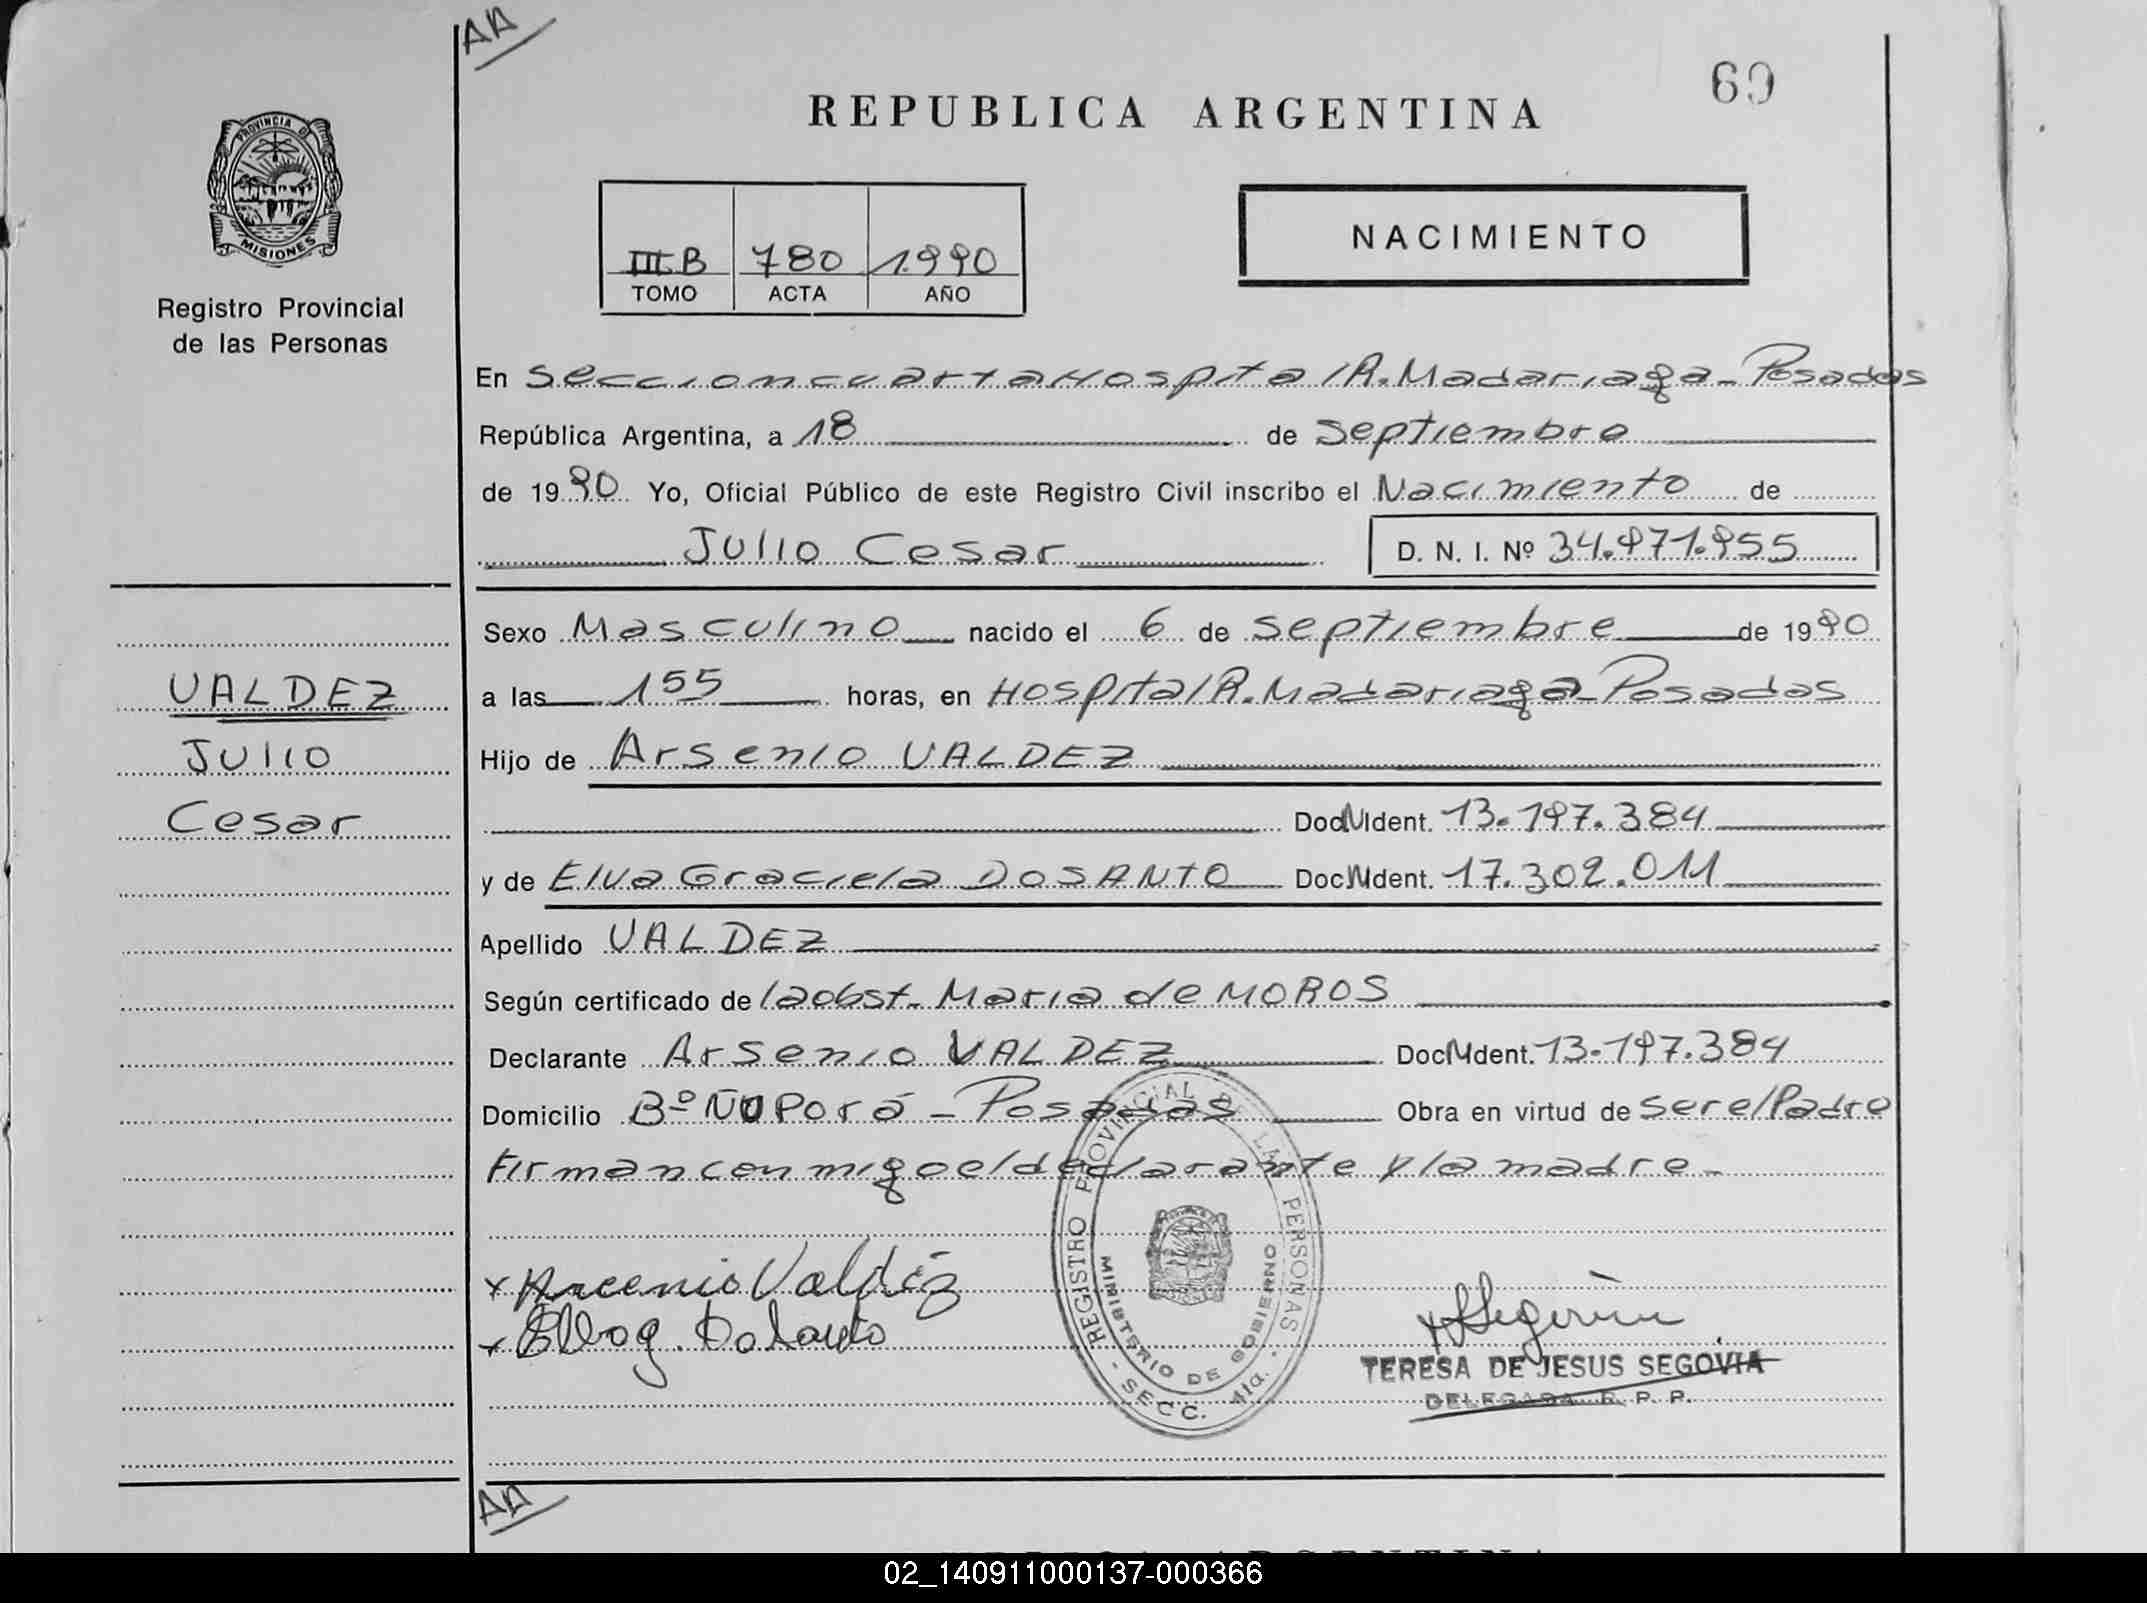 AA
69
REPUBLICA ARGENTINA
PROVINCIA D
MISIONES
Registro Provincial
de las Personas
III.B 780 1.990
TOMO ACTA AÑO
NACIMIENTO
En seccion cuarta Hospital R. Madariaga - Posadas
República Argentina, a 18 de septiembre
de 1990 Yo, Oficial Público de este Registro Civil inscribo el Nacimiento de
Julio Cesar D. N. I. Nº 34.971.955
Sexo Masculino nacido el 6 de septiembre de 1990
a las 155 horas, en Hospital R. Madariaga - Posadas
Hijo de Arsenio VALDEZ
Doc Ident. 13.197.384
y de Elva Graciela DOSANTO Doc Ident. 17.302.011
Apellido VALDEZ
Según certificado de la obst. Maria de MOROS
Declarante Arsenio VALDEZ Doc Ident. 13.197.384
Domicilio Bº Ñu Porá - Posadas Obra en virtud de ser el Padre
Firman conmigo el declarante y la madre -
VALDEZ
Julio
Cesar
x Arcenio Valdéz
x Elba g. Dosanto
REGISTRO PROVINCIAL DE LAS PERSONAS
MINISTERIO DE GOBIERNO
- SECC. 4ta. -
TERESA DE JESUS SEGOVIA
DELEGADA R. P. P.
AA
02_140911000137-000366